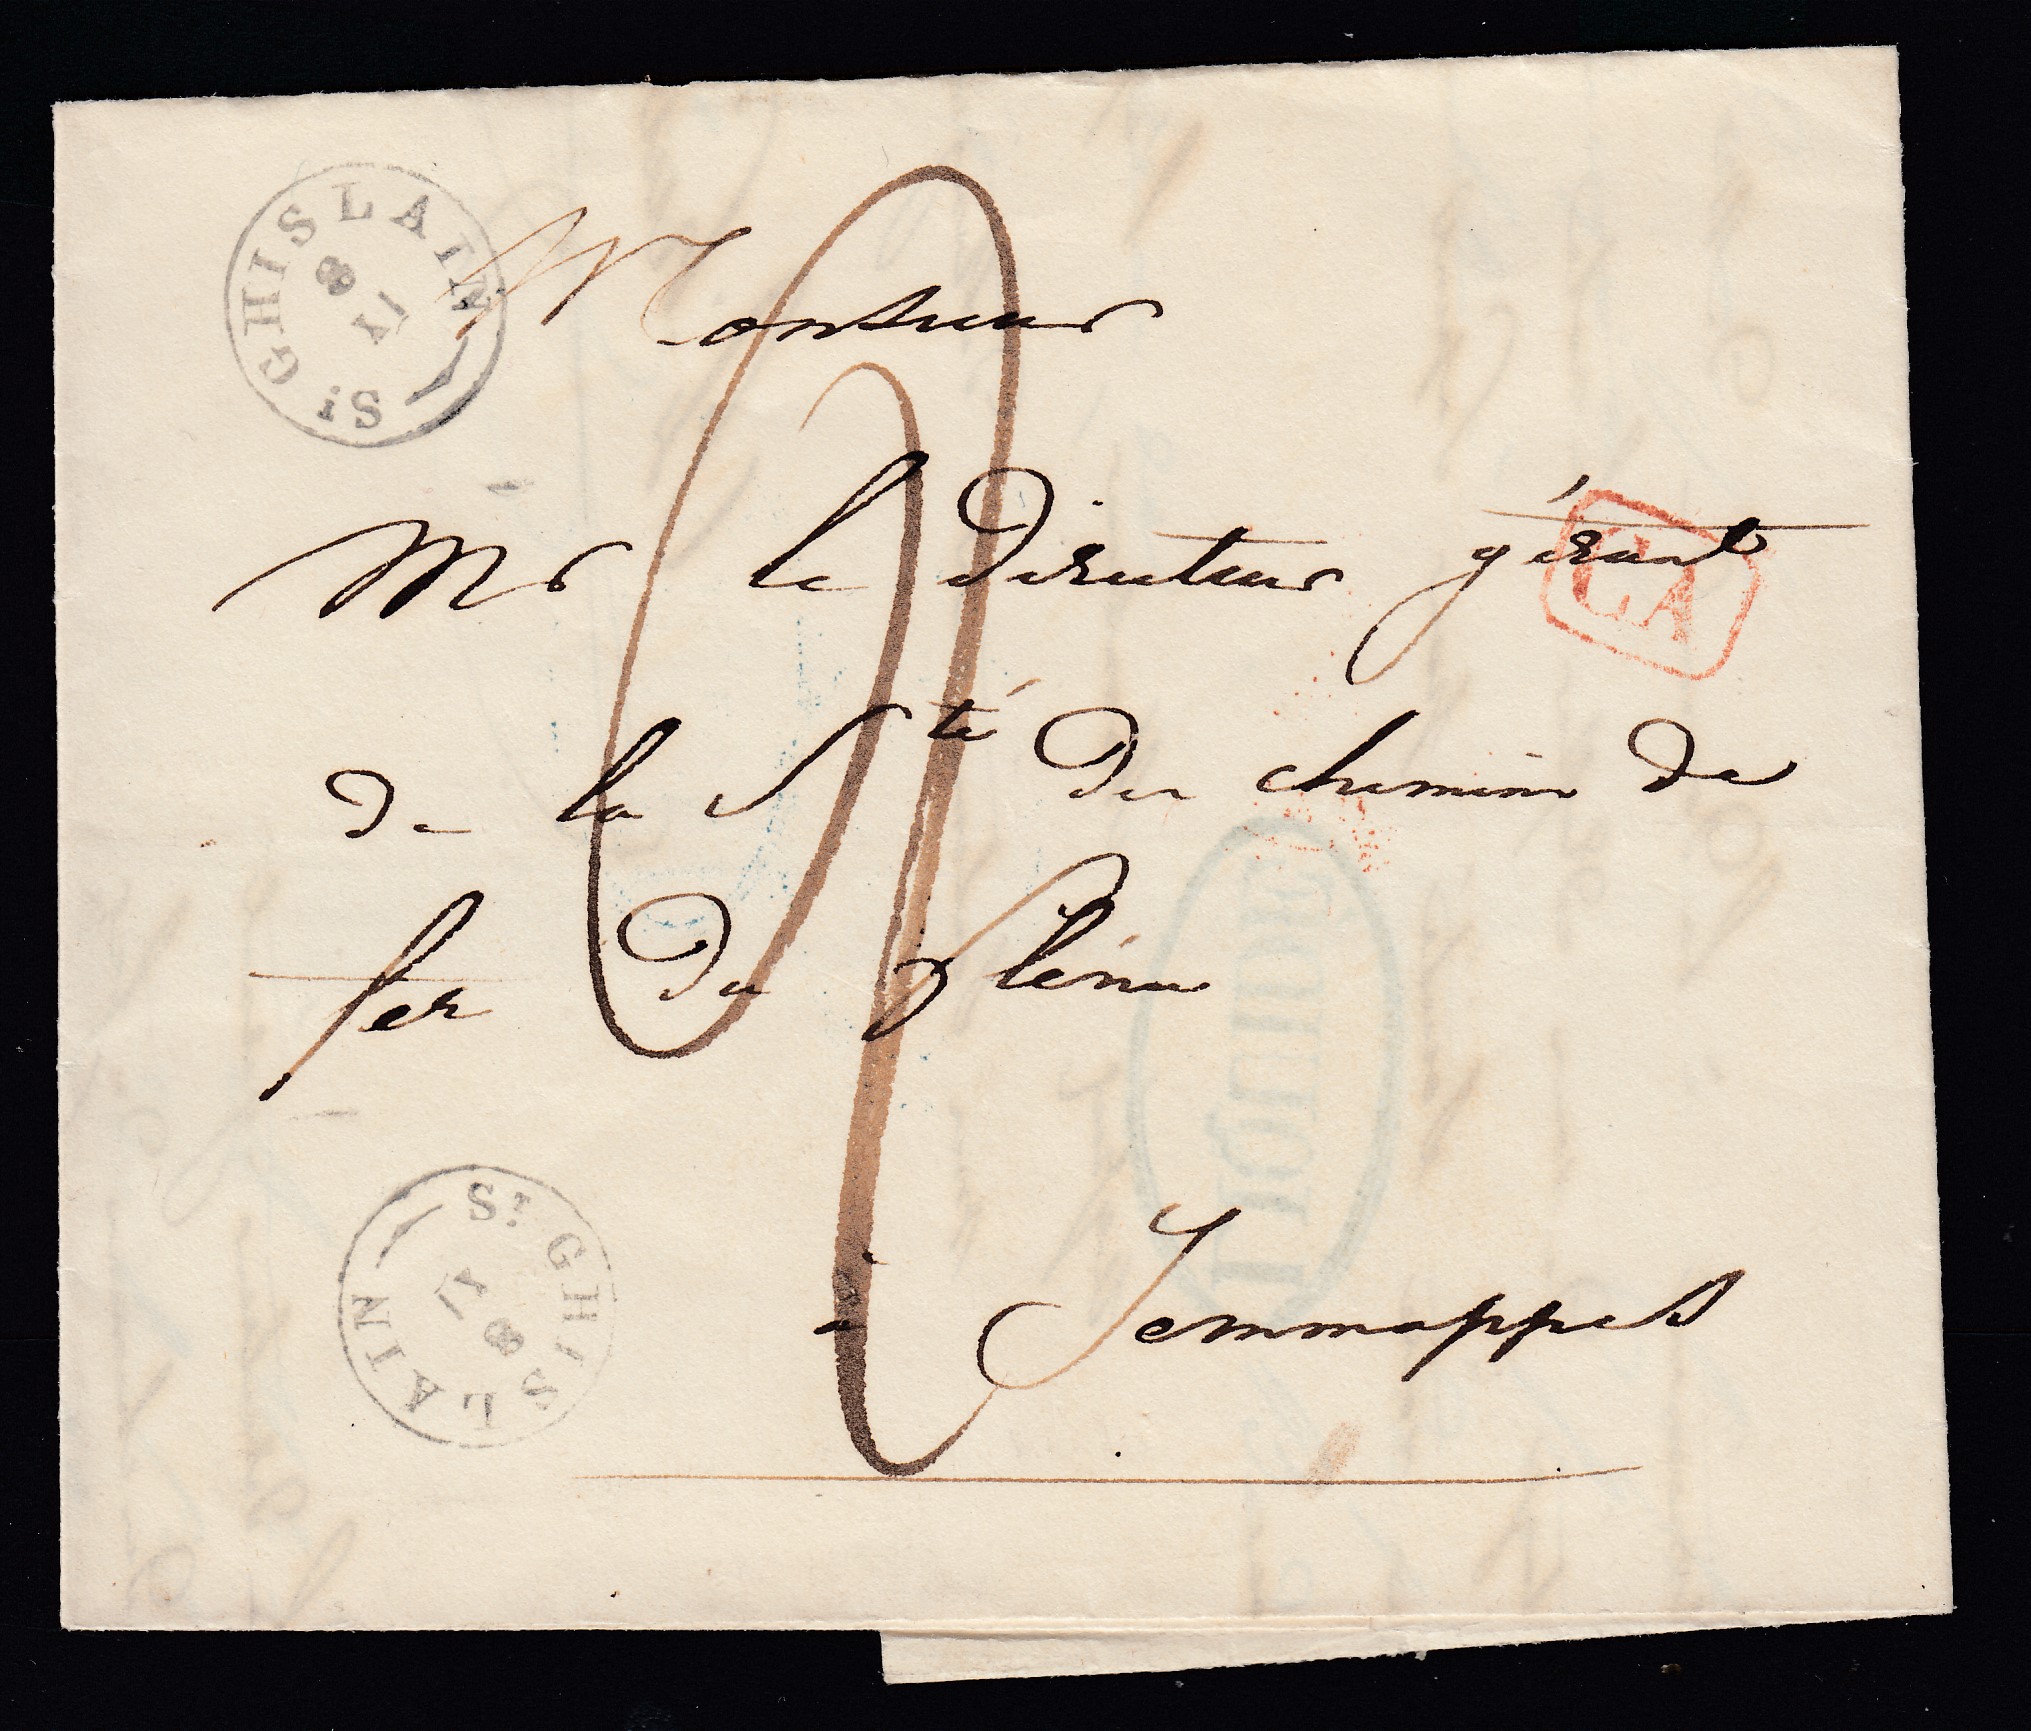 ST GHISLAIN
8
IX
Monsieur
Mr le Directeur gérant
CA
de la Sté du chemin de
fer du flénu
ST GHISLAIN
8
IX
à Jemmappes